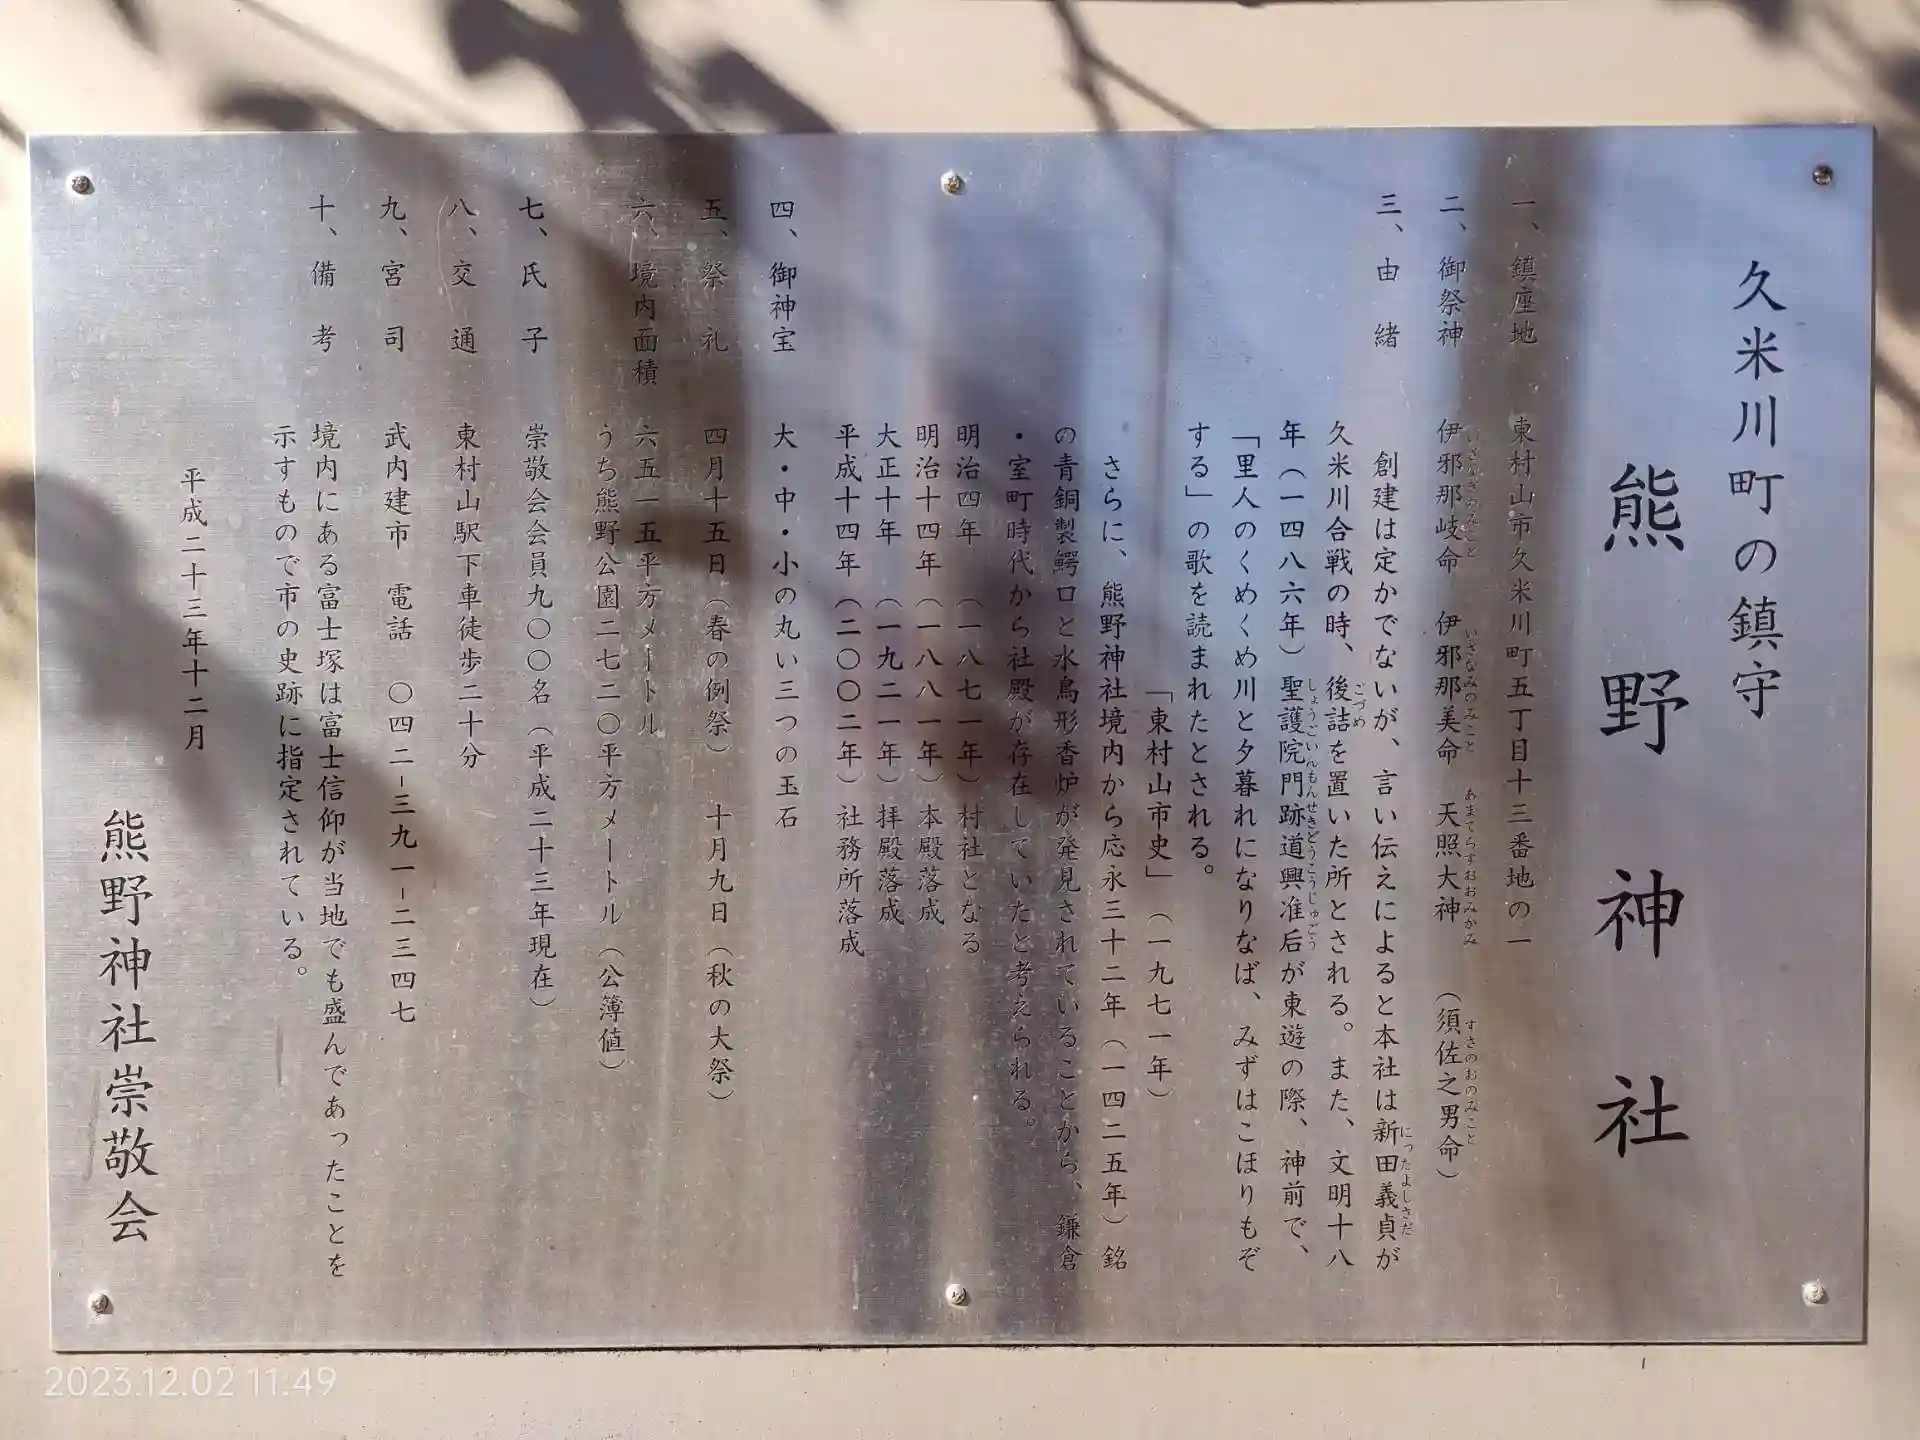 久米川町の鎮守
熊野神社
一、鎮座地 東村山市久米川町五丁目十三番地の一
二、御祭神 伊邪那岐命 伊邪那美命 天照大神 （須佐之男命）
いざなぎのみこと いざなみのみこと あまてらすおおみかみ すさのおのみこと
三、由緒 創建は定かでないが、言い伝えによると本社は新田義貞が
にったよしさだ
久米川合戦の時、後詰を置いた所とされる。また、文明十八
ごづめ
年（一四八六年）聖護院門跡道興准后が東遊の際、神前で、
しょうごいんもんせきどうこうじゅごう
「里人のくめくめ川と夕暮れになりなば、みずはこほりもぞ
する」の歌を読まれたとされる。
「東村山市史」（一九七一年）
さらに、熊野神社境内から応永三十二年（一四二五年）銘
の青銅製鰐口と水鳥形香炉が発見されていることから、鎌倉
・室町時代から社殿が存在していたと考えられる。
明治四年 （一八七一年）村社となる
明治十四年（一八八一年）本殿落成
大正十年 （一九二一年）拝殿落成
平成十四年（二〇〇二年）社務所落成
四、御神宝 大・中・小の丸い三つの玉石
五、祭礼 四月十五日（春の例祭） 十月九日（秋の大祭）
六、境内面積 六五一五平方メートル
うち熊野公園二七二〇平方メートル（公簿値）
七、氏子 崇敬会会員九〇〇名（平成二十三年現在）
八、交通 東村山駅下車徒歩二十分
九、宮司 武内建市 電話 〇四二－三九一－二三四七
十、備考 境内にある富士塚は富士信仰が当地でも盛んであったことを
示すもので市の史跡に指定されている。
平成二十三年十二月
熊野神社崇敬会
2023.12.02 11:49